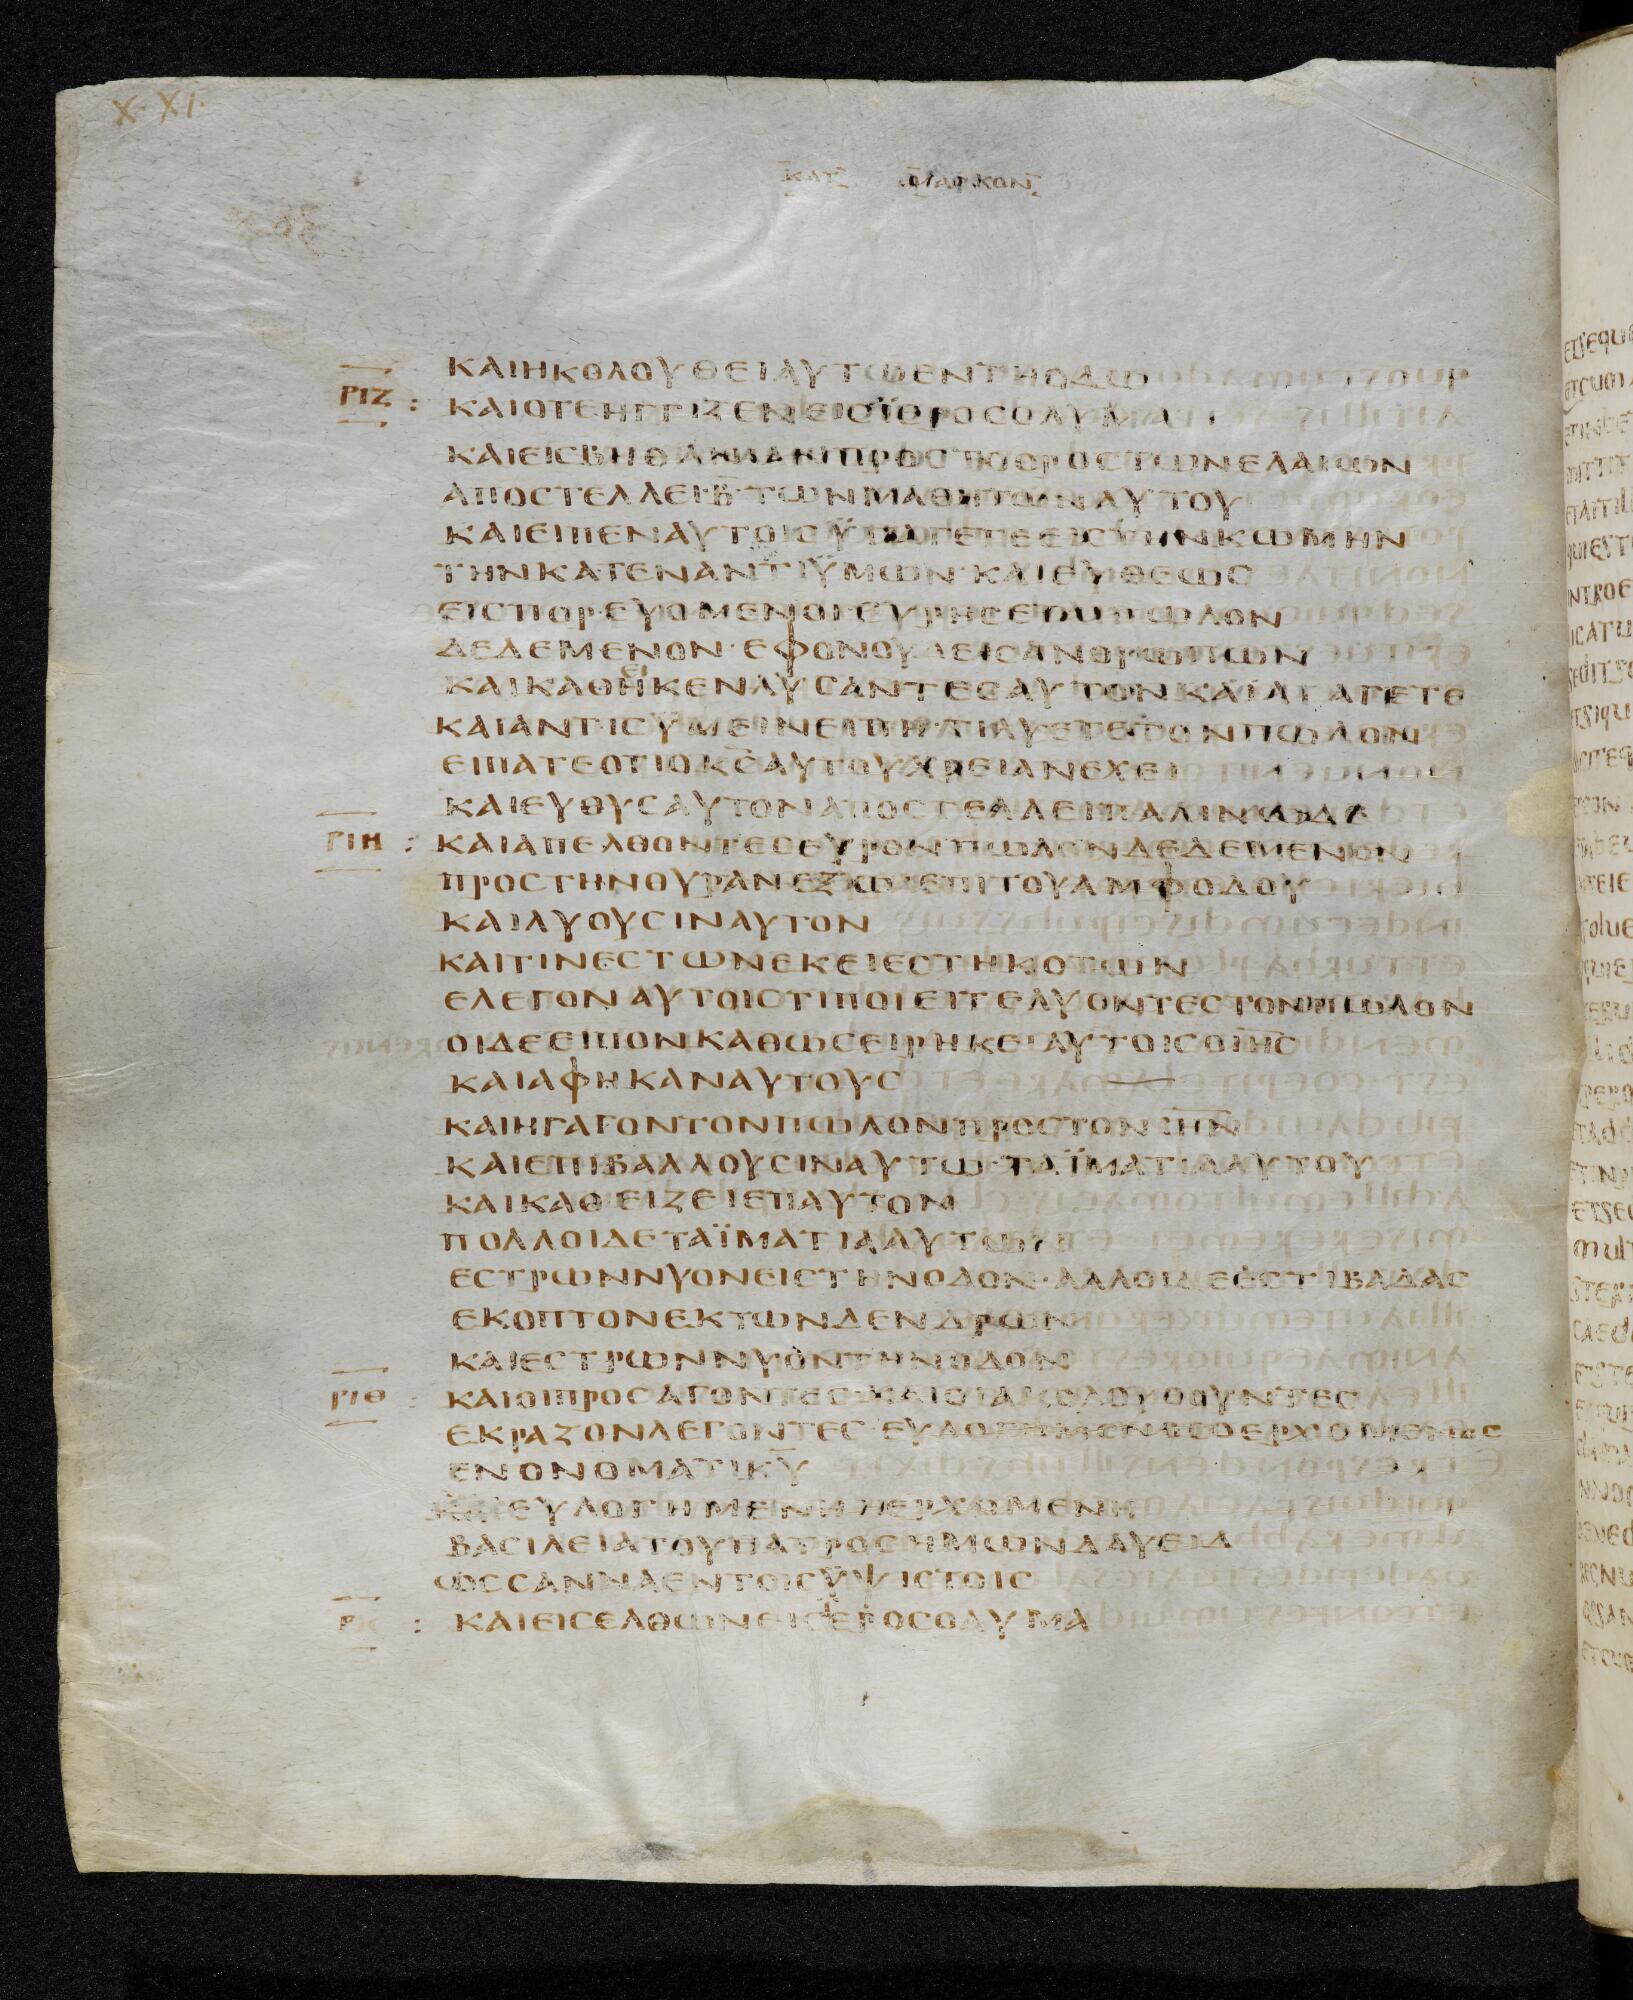 X·XI·
ΚΑΤ ΜΑΡΚΟΝ
ΚΑΙΗΚΟΛΟΥΘΕΙΑΥΤΩΕΝΤΗΟΔΩ
ΡΙΖ : ΚΑΙΟΤΕΗΓΓΙΖΕΝΕΙΣΪΕΡΟΣΟΛΥΜΑ
ΚΑΙΕΙΣΒΗΘΑΝΙΑΝΠΡΟΣΤΟΟΡΟΣΤΩΝΕΛΑΙΩΝ
ΑΠΟΣΤΕΛΛΕΙ·Β̅·ΤΩΝΜΑΘΗΤΩΝΑΥΤΟΥ
ΚΑΙΕΙΠΕΝΑΥΤΟΙΣΫΠΑΓΕΤΕΕΙΣΤΗΝΚΩΜΗΝ
ΤΗΝΚΑΤΕΝΑΝΤΙΫΜΩΝ·ΚΑΙΕΥΘΕΩΣ
ΕΙΣΠΟΡΕΥΟΜΕΝΟΙΕΥΡΗΣΕΤΑΙΠΩΛΟΝ
ΔΕΔΕΜΕΝΟΝ·ΕΦΟΝΟΥΔΕΙΣΑΝΘΡΩΠΩΝ
ΚΑΙΚΑΘΗΚΕΝΛΥΣΑΝΤΕΣΑΥΤΟΝΚΑΙΑΓΑΓΕΤΕ
ΚΑΙΑΝΤΙΣΥΜΕΙΝΕΙΠΗ·ΤΙΛΥΕΤΕΤΟΝΠΩΛΟΝ
ΕΙΠΑΤΕΟΤΙΟΚ̅Σ̅ΑΥΤΟΥΧΡΕΙΑΝΕΧΕΙ
ΚΑΙΕΥΘΥΣΑΥΤΟΝΑΠΟΣΤΕΛΛΕΙΠΑΛΙΝΩΔΕ
ΡΙΗ : ΚΑΙΑΠΕΛΘΟΝΤΕΣΕΥΡΟΝΠΩΛΟΝΔΕΔΕΜΕΝΟΝ
ΠΡΟΣΤΗΝΘΥΡΑΝΕΞΩΕΠΙΤΟΥΑΜΦΟΔΟΥ
ΚΑΙΛΥΟΥΣΙΝΑΥΤΟΝ
ΚΑΙΤΙΝΕΣΤΩΝΕΚΕΙΕΣΤΗΚΟΤΩΝ
ΕΛΕΓΟΝΑΥΤΟΙΣΤΙΠΟΙΕΙΤΕΛΥΟΝΤΕΣΤΟΝΠΩΛΟΝ
ΟΙΔΕΕΙΠΟΝΚΑΘΩΣΕΙΡΗΚΕΙΑΥΤΟΙΣΟΙ̅Η̅Σ̅
ΚΑΙΑΦΗΚΑΝΑΥΤΟΥΣ
ΚΑΙΗΓΑΓΟΝΤΟΝΠΩΛΟΝΠΡΟΣΤΟΝΙ̅Η̅Ν̅
ΚΑΙΕΠΙΒΑΛΛΟΥΣΙΝΑΥΤΩ·ΤΑΪΜΑΤΙΑΑΥΤΟΥ
ΚΑΙΚΑΘΕΙΖΕΙΕΠΑΥΤΟΝ
ΠΟΛΛΟΙΔΕΤΑΪΜΑΤΙΑΑΥΤΩΝ
ΕΣΤΡΩΝΝΥΟΝΕΙΣΤΗΝΟΔΟΝ·ΑΛΛΟΙΔΕΕΣΤΙΒΑΔΑΣ
ΕΚΟΠΤΟΝΕΚΤΩΝΔΕΝΔΡΩΝ
ΚΑΙΕΣΤΡΩΝΝΥΟΝΤΗΝΟΔΟΝ
ΡΙΘ : ΚΑΙΟΙΠΡΟΣΑΓΟΝΤΕΣ·ΚΑΙΟΙΑΚΟΛΟΥΘΟΥΝΤΕΣ
ΕΚΡΑΖΟΝΛΕΓΟΝΤΕΣ·ΕΥΛΟΓΗΜΕΝΟΣΟΕΡΧΟΜΕΝΟΣ
ΕΝΟΝΟΜΑΤΙΚ̅Υ̅
ΚΑΙΕΥΛΟΓΗΜΕΝΗΗΕΡΧΟΜΕΝΗ
ΒΑΣΙΛΕΙΑΤΟΥΠΑΤΡΟΣΗΜΩΝΔΑΥΕΙΔ
ΩΣΣΑΝΝΑΕΝΤΟΙΣΫΨΙΣΤΟΙΣ
ΡΚ : ΚΑΙΕΙΣΕΛΘΩΝΕΙΣΙΕΡΟΣΟΛΥΜΑ